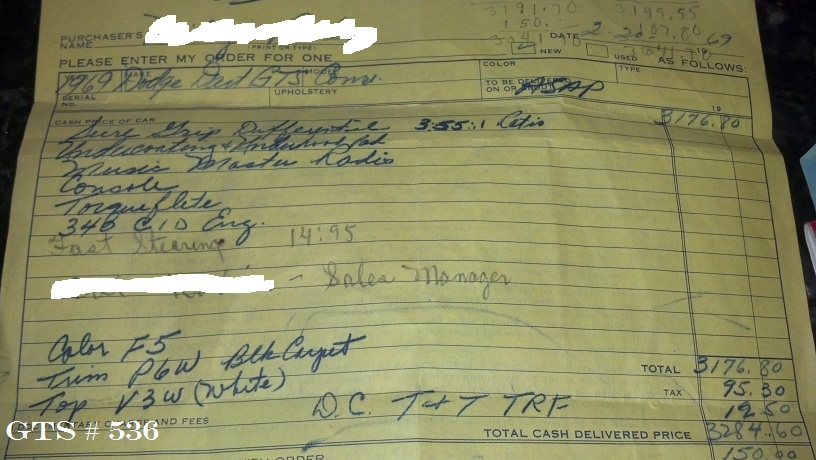 3191.70 3199.55
150.- 107.80
3041.70 3091.70
PURCHASER'S NAME
(PRINT OR TYPE)
DATE 2-20 1969
PLEASE ENTER MY ORDER FOR ONE
NEW USED AS FOLLOWS:
MAKE MODEL COLOR TYPE
1969 Dodge Dart GTS Conv.
SERIAL NO. UPHOLSTERY TO BE DELIVERED ON OR ABOUT ASAP 19
CASH PRICE OF CAR 3176.80
Sure Grip Differential 3:55:1 Ratio
Undercoating & Underhood Pad
Music Master Radio
Console
Torqueflite
340 C.I.D Eng.
Fast Steering 14:95
- Sales Manager
Color F5
Trim P6W Blk Carpet
Top V3W (White)
D.C. T+T TRF
TOTAL 3176.80
TAX 95.30
AND FEES 12.50
TOTAL CASH DELIVERED PRICE 3284.60
WITH ORDER 150.00
GTS # 536